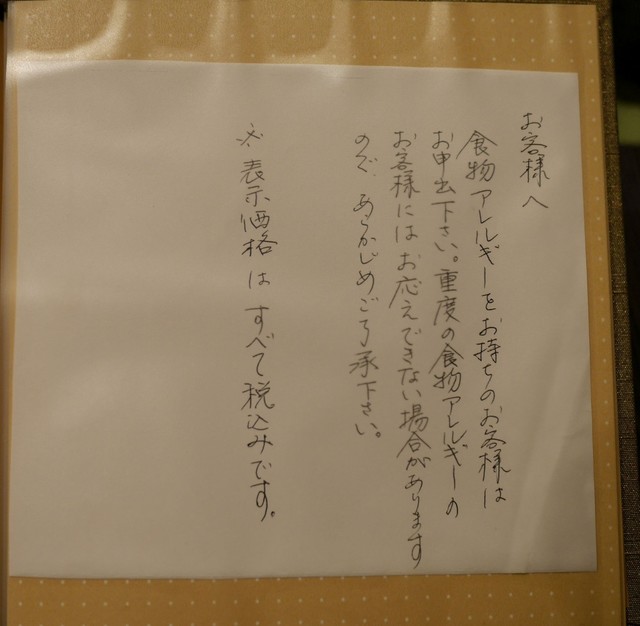 お客様へ
食物アレルギーをお持ちのお客様は
お申出下さい。重度の食物アレルギーの
お客様にはお応えできない場合があります
ので、あらかじめご了承下さい。
※表示価格はすべて税込みです。